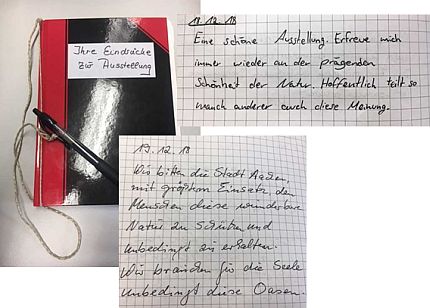 Ihre Eindrücke
zur Ausstellung
18.12.18
Eine schöne Ausstellung. Erfreue mich
immer wieder an der prägenden
Schönheit der Natur. Hoffentlich teilt so
manch anderer auch diese Meinung.
19.12.18
Wir bitten die Stadt Aachen,
mit größtem Einsatz den
Menschen diese wunderbare
Natur zu schützen und
unbedingt zu erhalten.
Wir brauchen für die Seele
unbedingt diese Oasen.